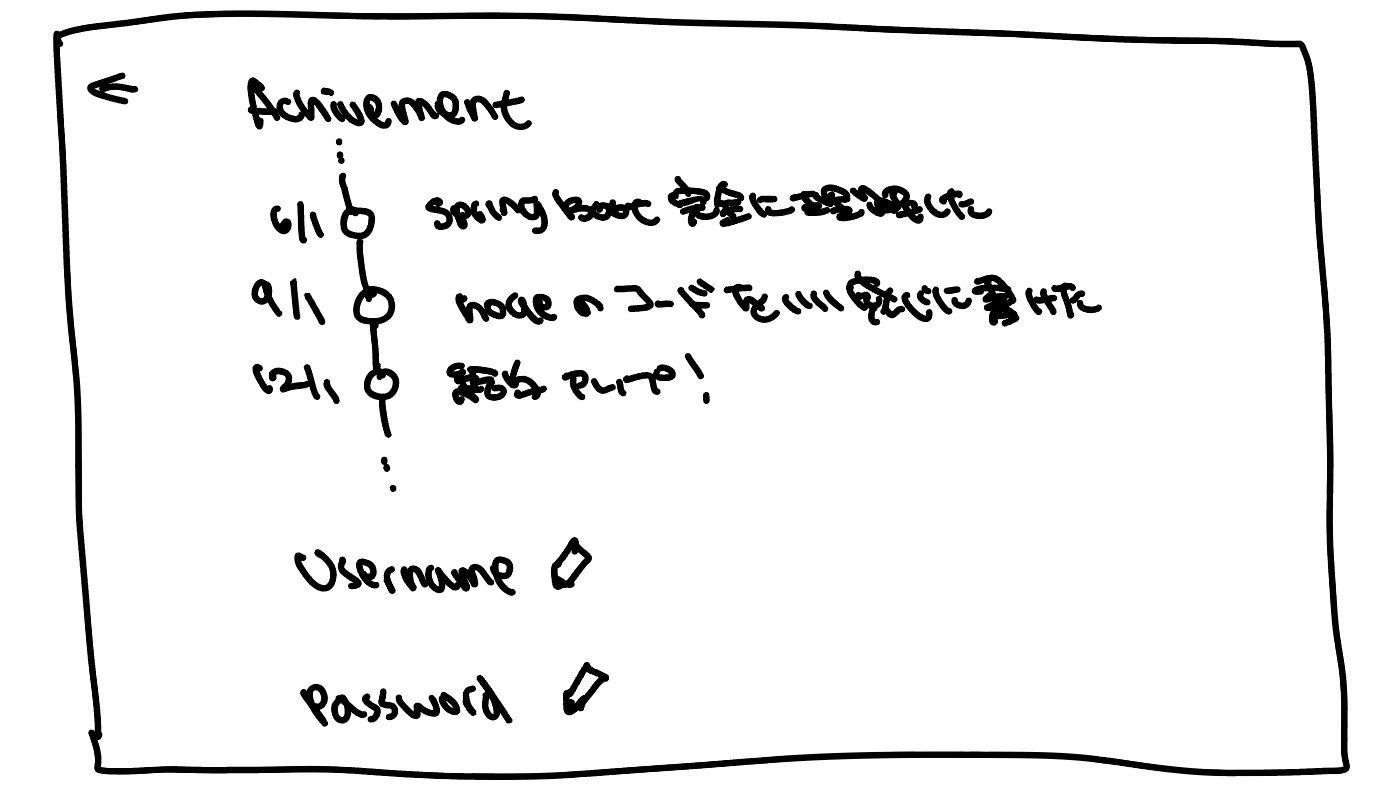 ←
Achivement
6/1 Spring Boot 完全に理解した
9/1 nodeのコードをいい感じに書けた
12/1 給料アップ!
Username
Password